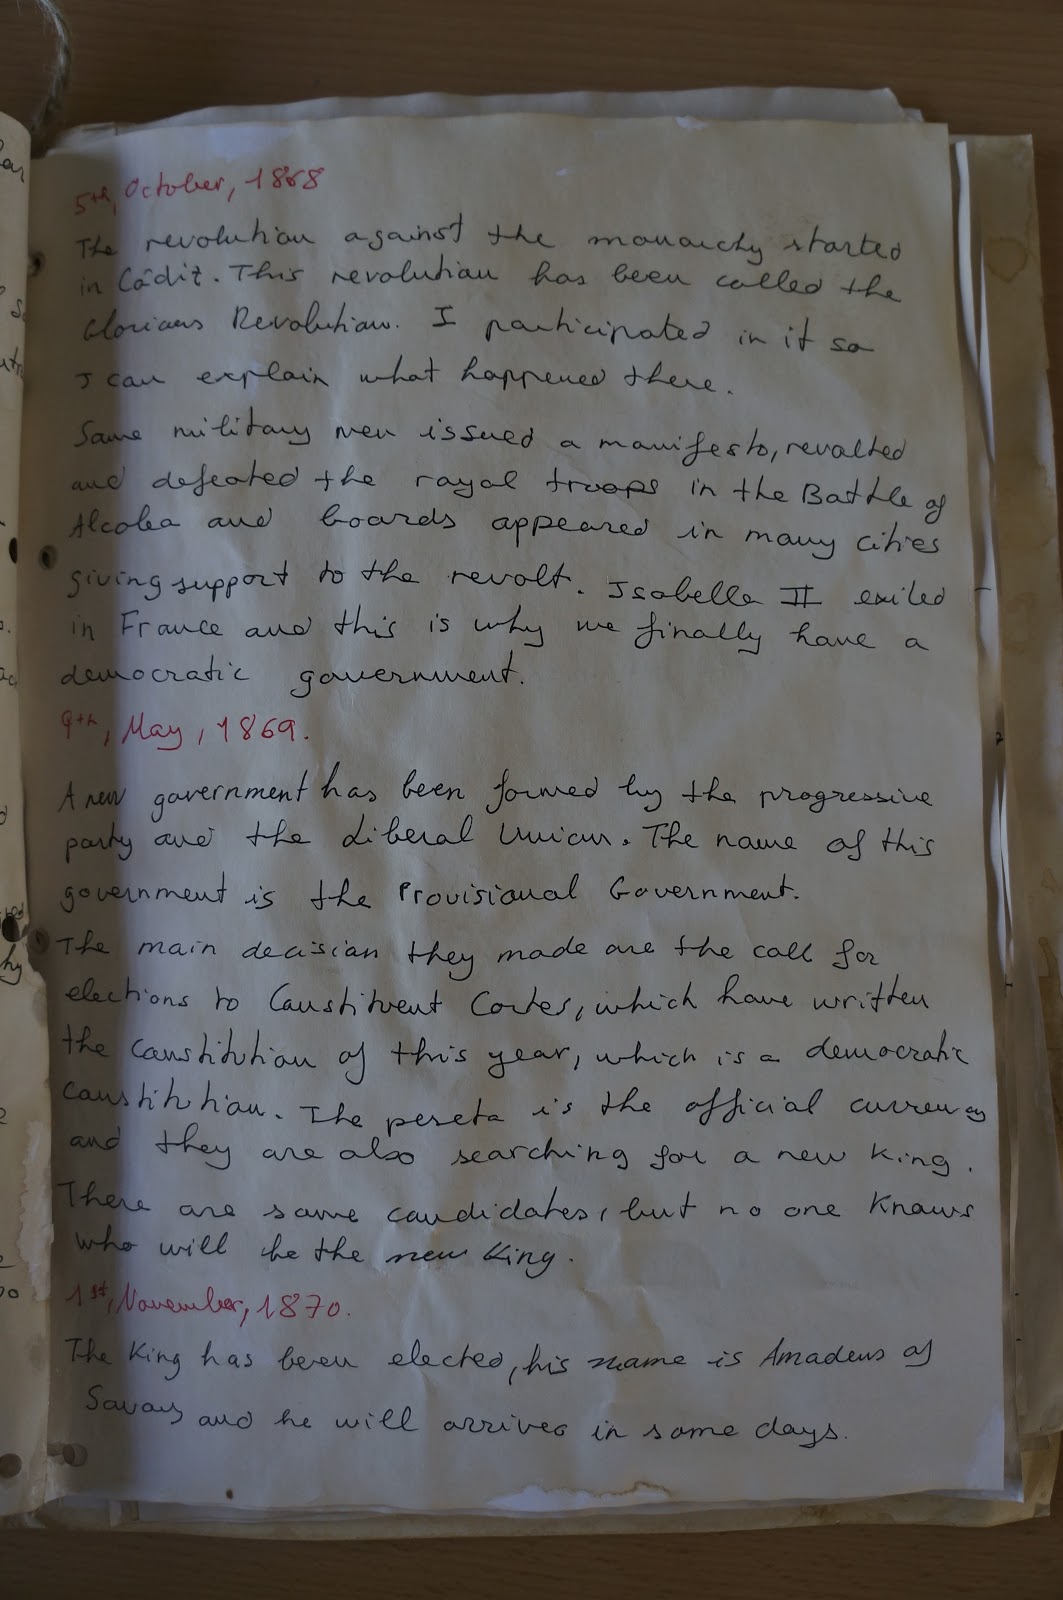 5th, October, 1868
The revolution against the monarchy started
in Cádiz. This revolution has been called the
Glorious Revolution. I participated in it so
I can explain what happened there.
Some military men issued a manifesto, revolted
and defeated the royal troops in the Battle of
Alcolea and boards appeared in many cities
giving support to the revolt. Isabella II exiled
in France and this is why we finally have a
democratic government.
9th, May, 1869.
A new government has been formed by the progressive
party and the Liberal Union. The name of this
government is the Provisional Government.
The main decision they made are the call for
elections to Constituent Cortes, which have written
the constitution of this year, which is a democratic
constitution. The peseta is the official currency
and they are also searching for a new king.
There are some candidates, but no one knows
who will be the new king.
1st, November, 1870.
The King has been elected, his name is Amadeus of
Savoy and he will arrives in some days.